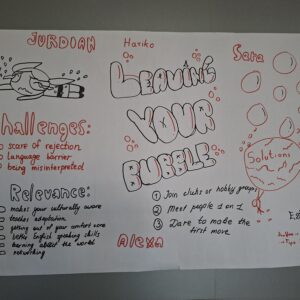 JURDIAN
Hariko
Sara
LEAVING
YOUR
BUBBLE
Challenges:
scare of rejection
language barrier
being misinterpreted
Relevance:
makes your culturally aware
teaches adaptation
getting out of your comfort zone
better English speaking skills
learning about the world
networking
Alexa
Solutions
1 Join clubs or hobby groups
2 Meet people 1 on 1
3 Dare to make the
first move